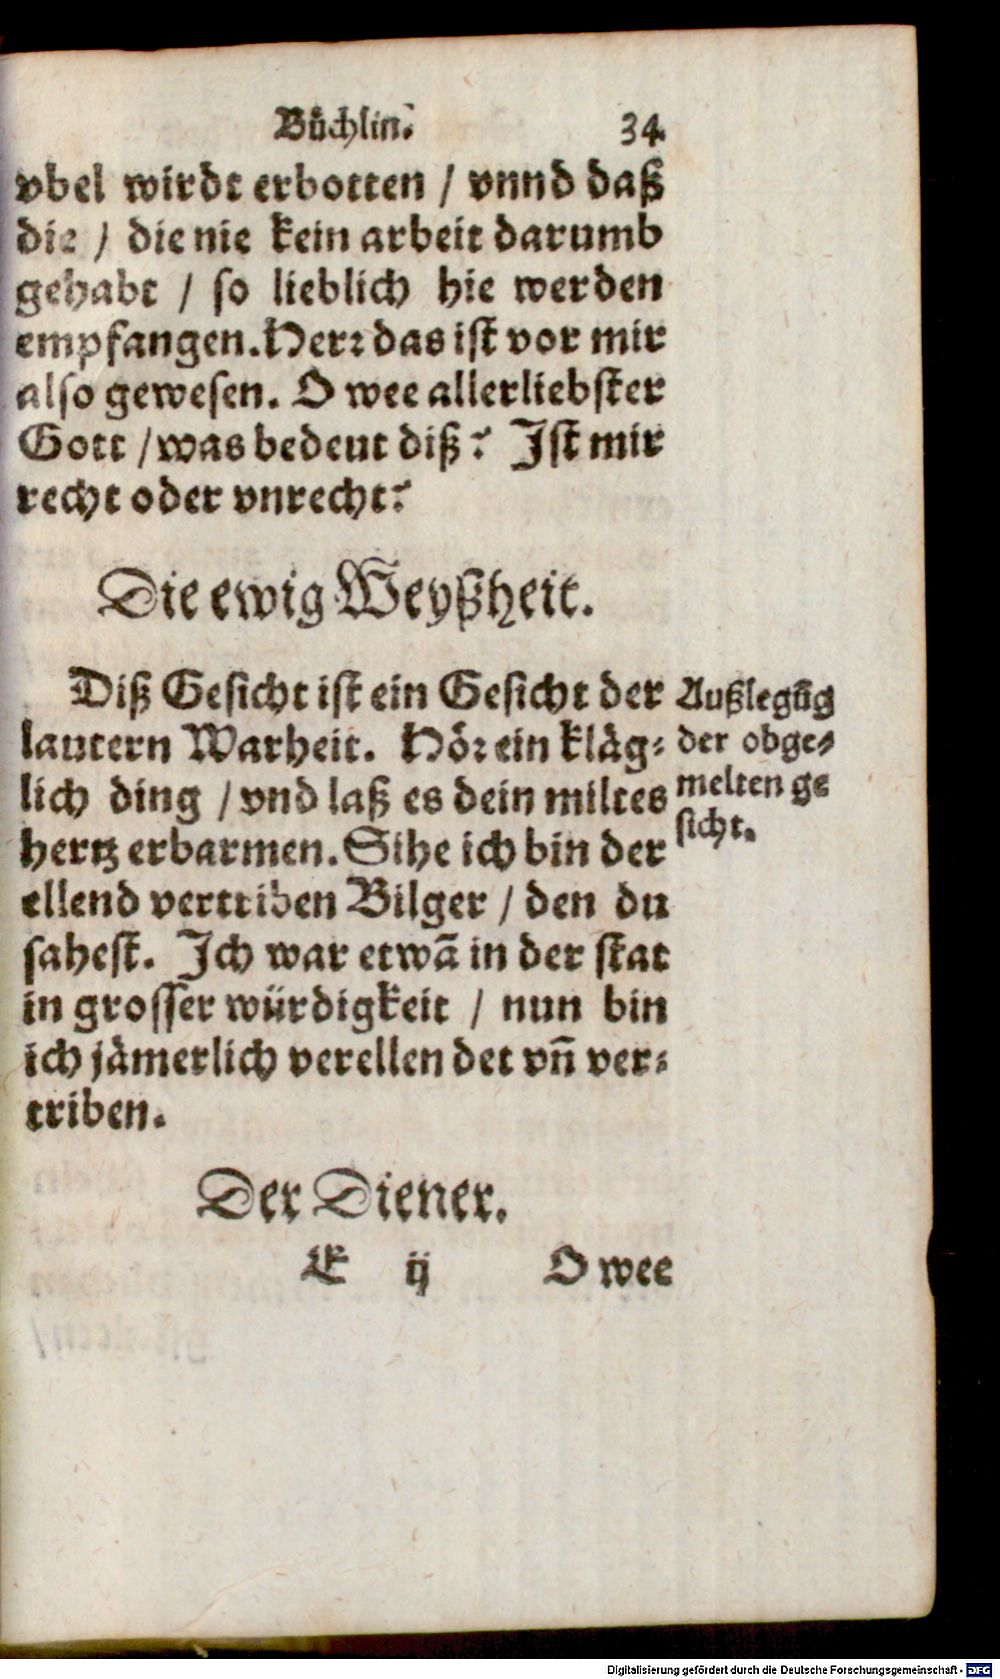 Bůchlin. 34
vbel wirdt erbotten / vnnd daß
die / die nie kein arbeit darumb
gehabt / so lieblich hie werden
empfangen. Herr das ist vor mir
also gewesen. O wee allerliebster
Gott / was bedeut diß? Ist mir
recht oder vnrecht?
Die ewig Weyßheit.
Diß Gesicht ist ein Gesicht der
lautern Warheit. Hör ein kläg-
lich ding / vnd laß es dein miltes
hertz erbarmen. Sihe ich bin der
ellend vertriben Bilger / den du
sahest. Ich war etwã in der stat
in grosser würdigkeit / nun bin
ich jämerlich verellendet vñ ver-
triben.
Außlegũg
der obge-
melten ge
sicht.
Der Diener.
E ij O wee
Digitalisierung gefördert durch die Deutsche Forschungsgemeinschaft - DFG